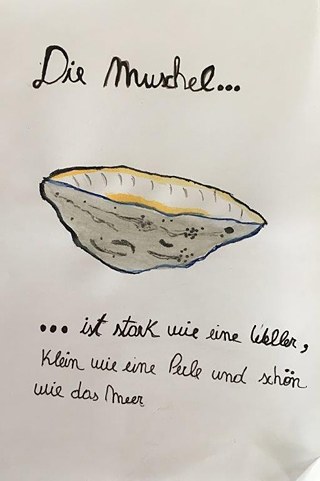 Die Muschel...
... ist stark wie eine Weller,
Klein wie eine Perle und schön
wie das Meer